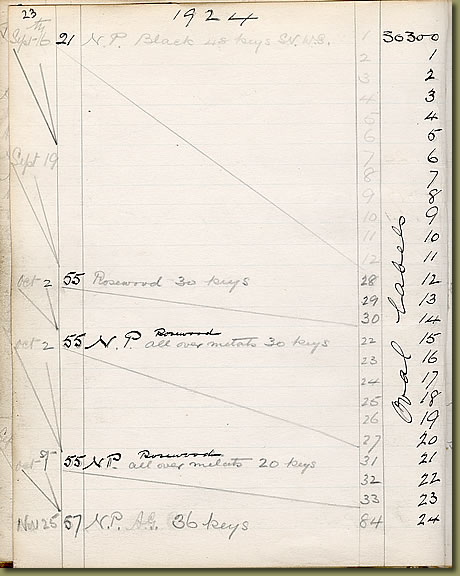 23
1924
th
Sept 16 21 N.P. Black 48 keys S.V.W.S. 1 30300
2 1
3 2
4 3
5 4
6 5
7 6
Sept 19
8 7
9 8
10 9
11 10
12 11
Oct 2 55 Rosewood 30 keys 28 12
29 13
30 14
Rosewood
Oct 2 55 N.P. all over metals 30 keys 22 15
23 16
24 17
25 18
26 19
27 20
Rosewood
Oct 55 N.P. all over metals 20 keys 31 21
32 22
33 23
Nov 25 57 N.P. 36 keys 84 24
Oval Labels